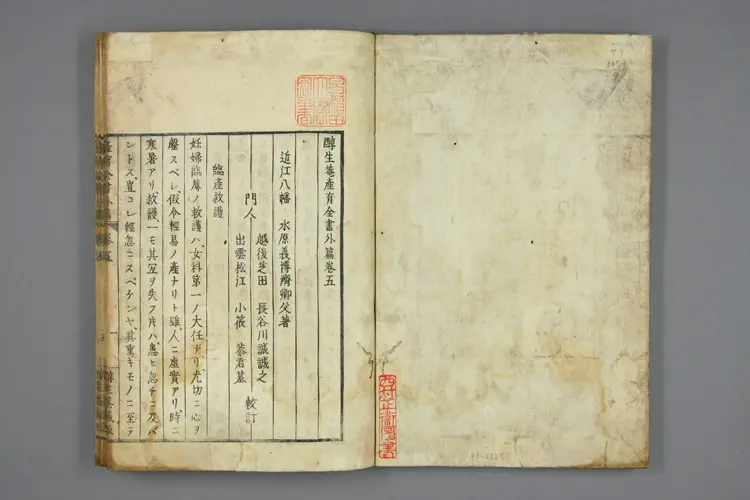 醇生菴產育全書外篇卷五
近江八幡 水原義博濟卿父著
門人
越後芝田 長谷川誠誠之
出雲松江 小筱 恭君基
較訂
臨產救護
妊婦臨蓐ノ救護ハ、女科第一ノ大任ナリ尤切ニ心ヲ
盤スベシ、假令輕易ノ產ナリト雖、人ニ虛實アリ、時ニ
寒暑アリ、救護一モ其冝ヲ失フ片ハ、患ヒ忽チニ及バ
ントス、豈コレ輕忽ニスベケンヤ、其重キモノニ至テ